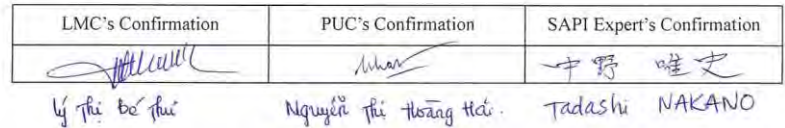 LMC's Confirmation PUC's Confirmation SAPI Expert's Confirmation
中野 唯史
Lý Thị Bé Thu Nguyễn Thị Hoàng Hải. Tadashi NAKANO